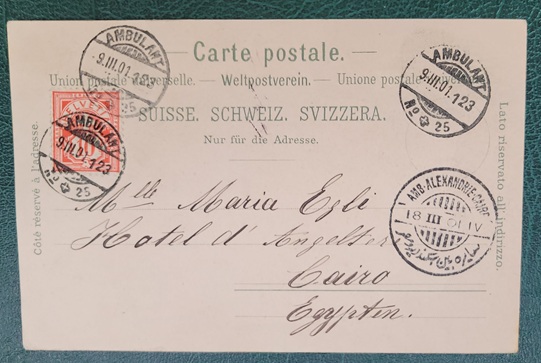 Carte postale.
Union postale universelle. — Weltpostverein. — Unione postale universale
SUISSE. SCHWEIZ. SVIZZERA.
Nur für die Adresse.
Côté réservé à l'adresse.
Lato riservato all'indirizzo.
AMBULANT
9.III.01.-123
No 25
AMBULANT
9.III.01.-123
No 25
AMBULANT
9.III.01.-123
No 25
HELVETIA
10
AMB-ALEXANDRIE-CAIRE
18 III 01 IV
Mlle Maria Egli
Hotel d'Angleter
Cairo
Egypten.